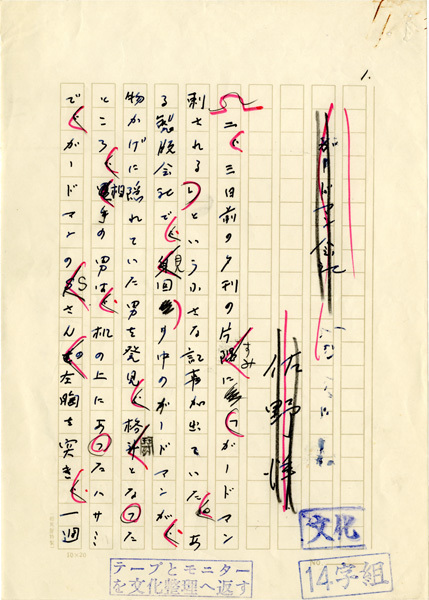 1.
佐野洋
二、三日前の夕刊の片隅に、「ガードマン
すみ
刺される」という小さな記事が出ていた。あ
る製版会社で、見回り中のガードマンが、
物かげに隠れていた男を発見、格闘となった
ところ、相手の男は、机の上にあったハサミ
で、ガードマンのSさんの左胸を突き、一週
文化
14字組
テープとモニター
を文化整理へ返す